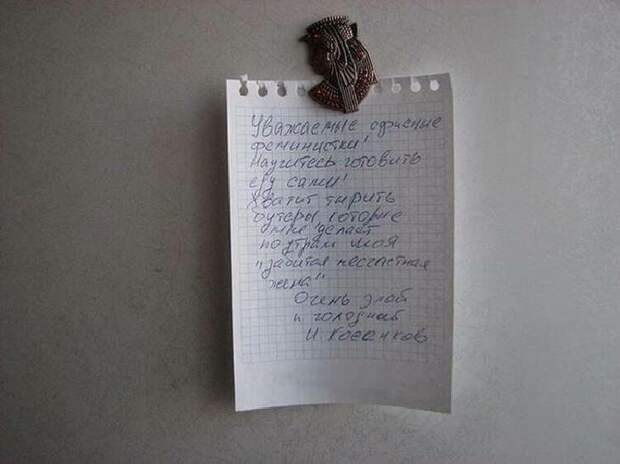 Уважаемые офисные
феминистки!
Научитесь готовить
еду сами!
Хватит тырить
бутеры которые
мне делает
по утрам моя
"забитая несчастная
жена"
Очень злой
и голодный
И.